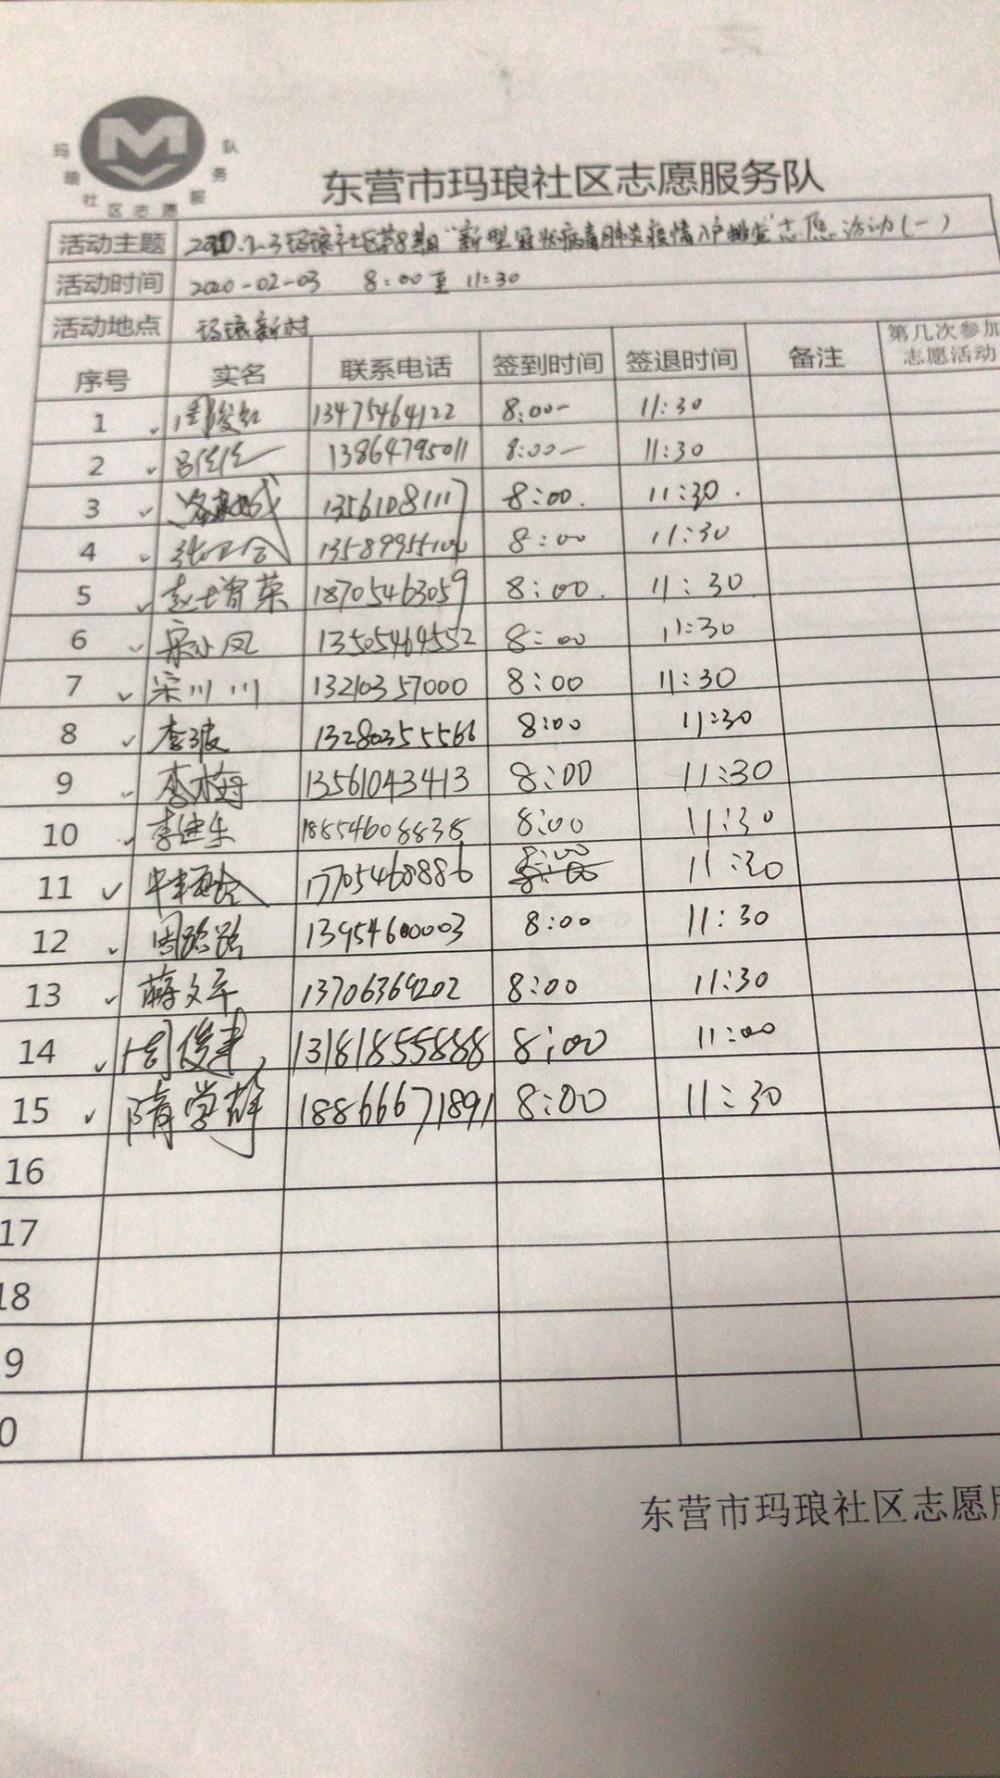 玛琅社区志愿服务队
东营市玛琅社区志愿服务队
活动主题 2020.2.3玛琅社区第8期"新型冠状病毒肺炎疫情入户排查"志愿活动(一)
活动时间 2020-02-03 8:00至 11:30
活动地点 玛琅新村
序号 实名 联系电话 签到时间 签退时间 备注 第几次参加志愿活动
1 周俊红 13475464122 8:00- 11:30
2 吕佳佳 13864795011 8:00- 11:30
3 13561081117 8:00. 11:30.
4 张卫会 8:00 11:30
5 赵增荣 18705463059 8:00. 11:30
6 宋小凤 13505464552 8:00 11:30
7 宋川川 13210357000 8:00 11:30
8 李波 13280355566 8:00 11:30
9 李梅 13561043413 8:00 11:30
10 李建乐 18854608838 8:00 11:30
11 17705460886 8:00 11:30
12 周路路 13954600003 8:00 11:30
13 蒋文平 13706364202 8:00 11:30
14 周俊建 13181855888 8:00 11:00
15 隋学静 18866671891 8:00 11:30
16
17
18
9
0
东营市玛琅社区志愿服